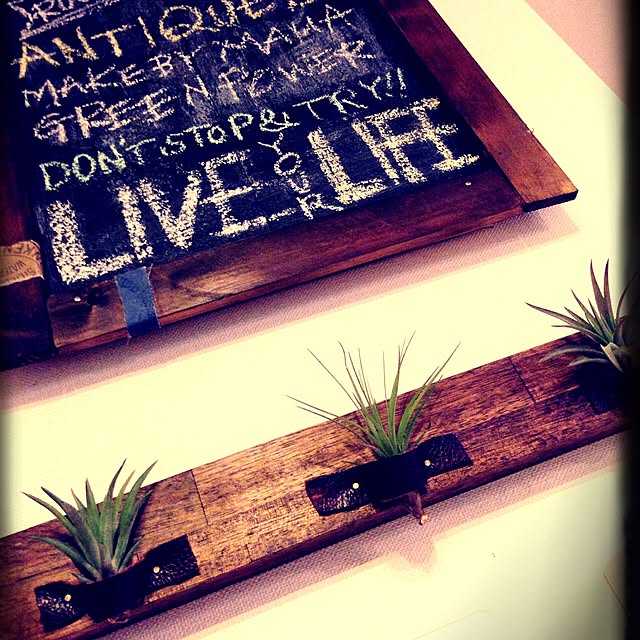 ANTIQUE
MAKE BY MAMA
GREEN
DON'T STOP & TRY!!
LIVE YOUR LIFE